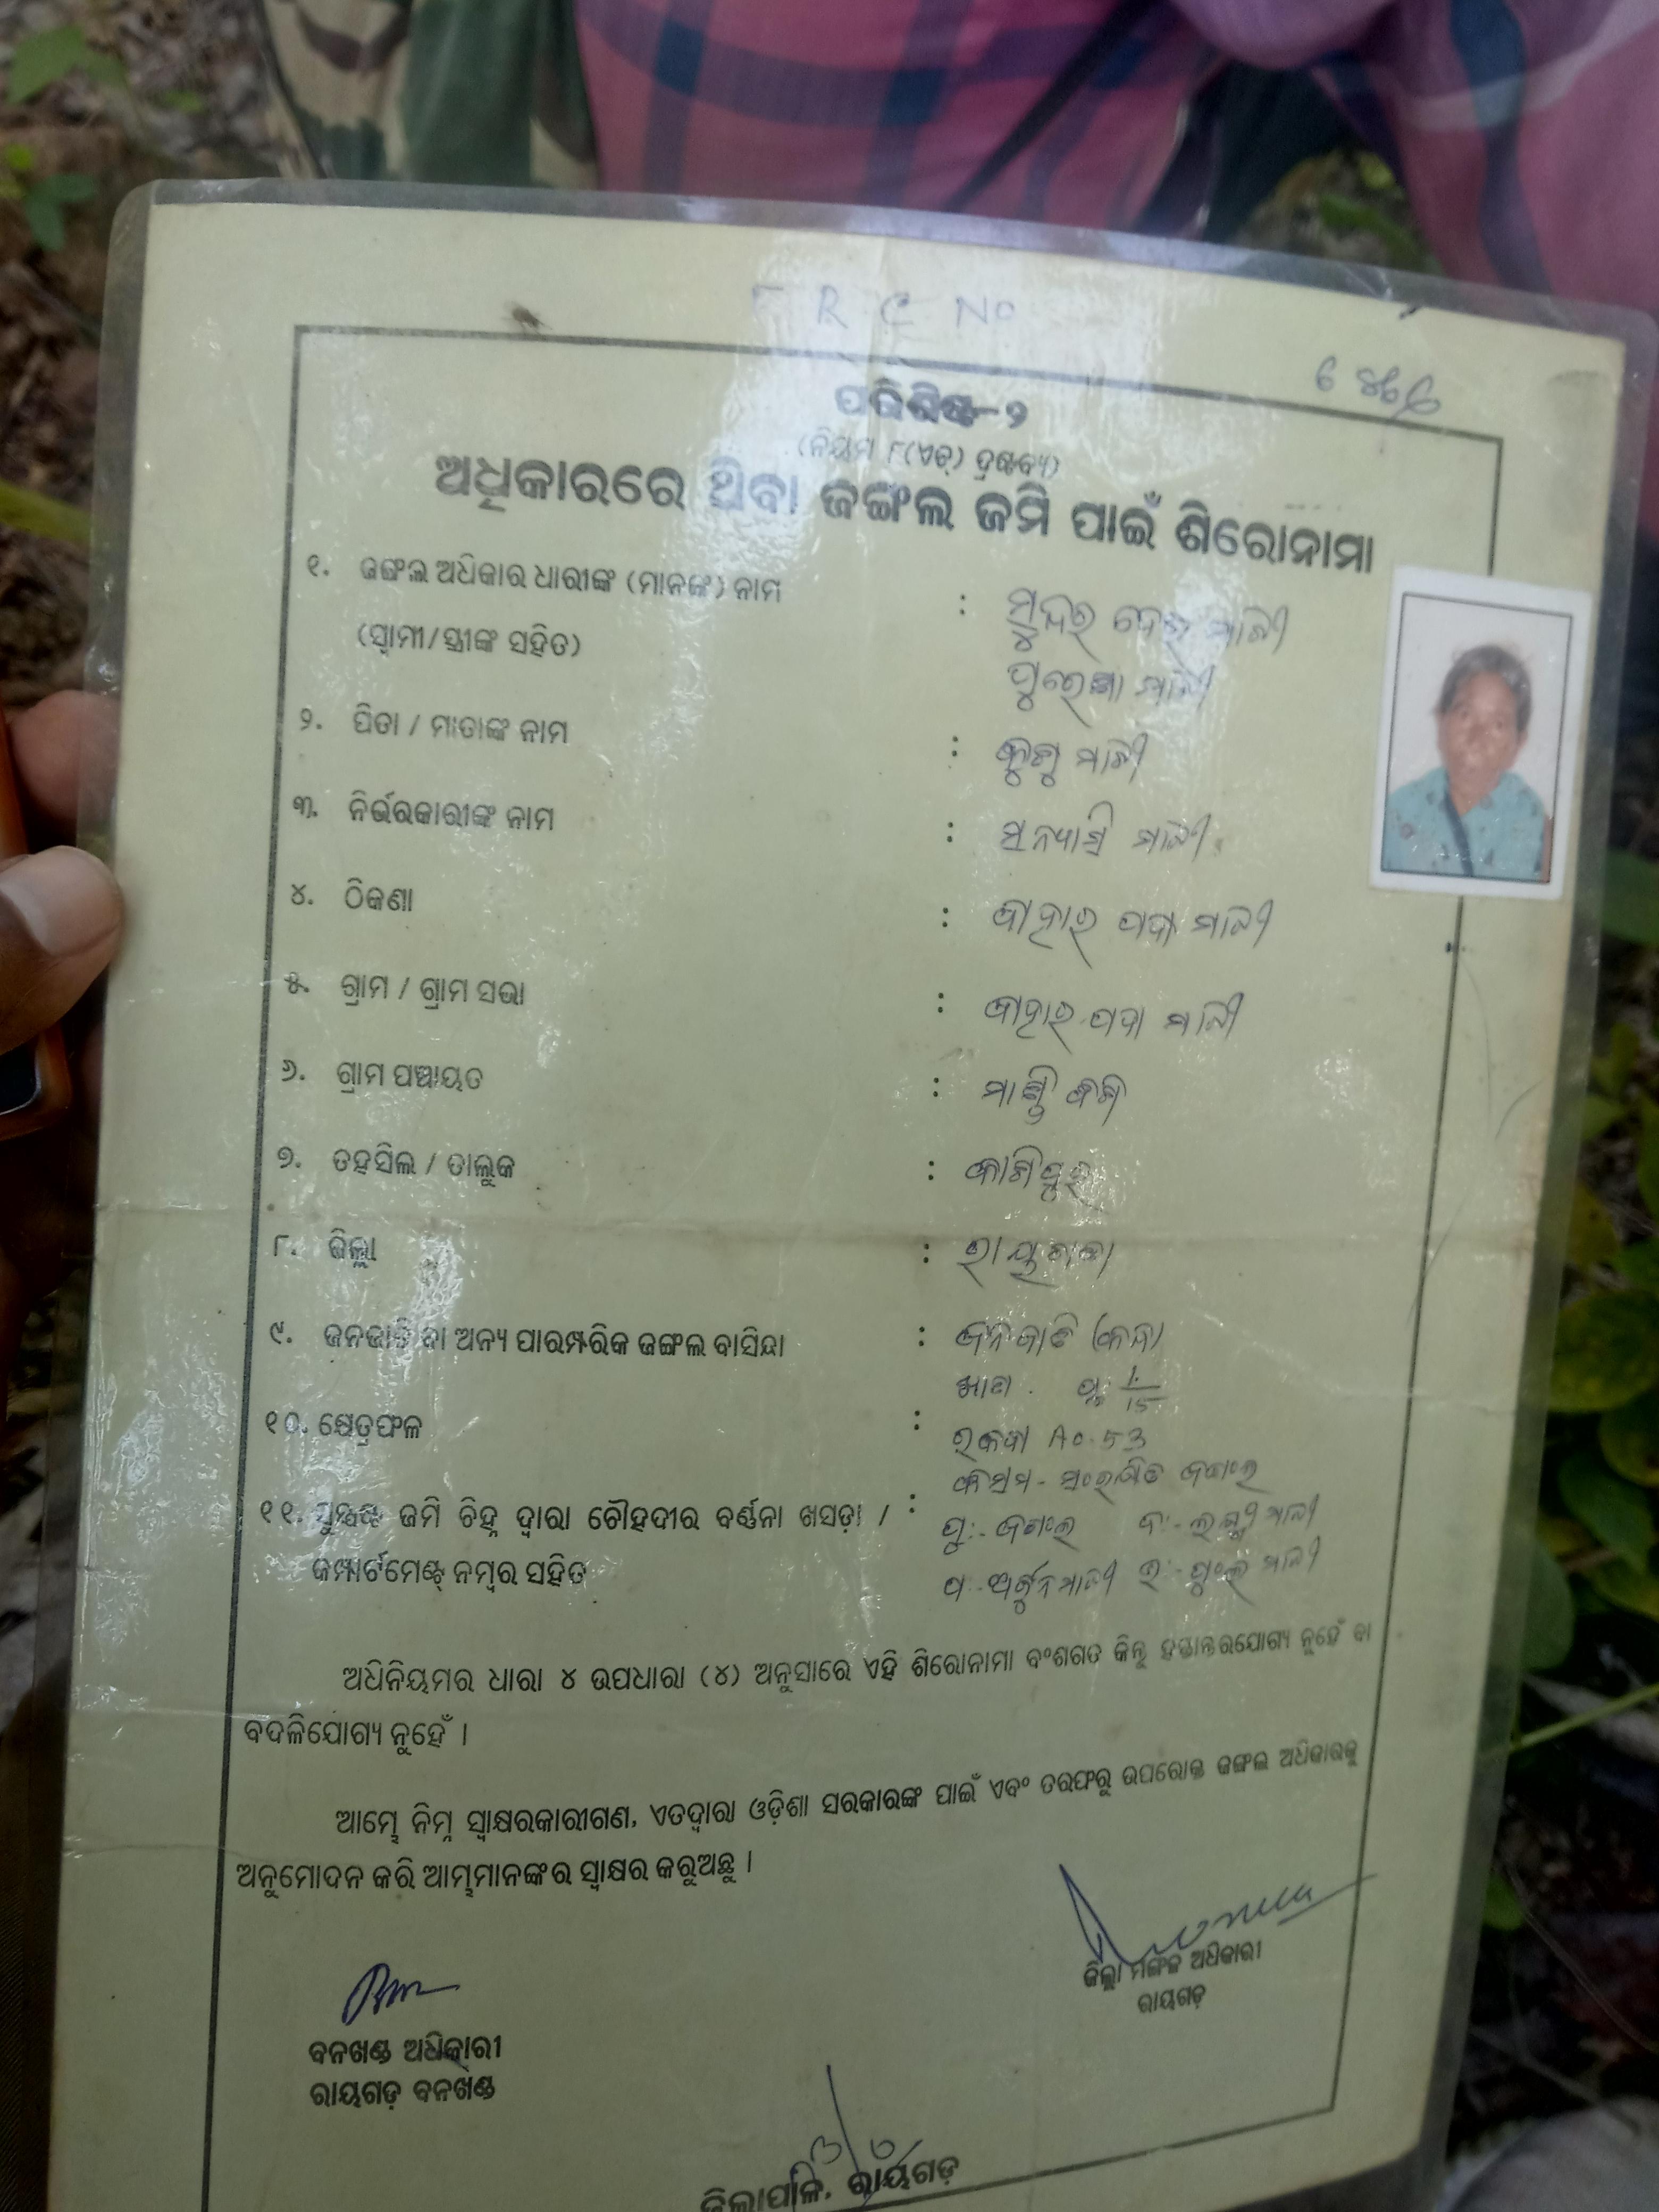 F R C No
ପରିଶିଷ୍ଟ-୨
(ନିୟମ ୮(ଏଚ୍) ଦ୍ରଷ୍ଟବ୍ୟ)
ଅଧିକାରରେ ଥିବା ଜଙ୍ଗଲ ଜମି ପାଇଁ ଶିରୋନାମା
୧. ଜଙ୍ଗଲ ଅଧିକାର ଧାରୀଙ୍କ (ମାନଙ୍କ) ନାମ : ସୁନ୍ଦର ଦେଇ ମାଝୀ
(ସ୍ୱାମୀ/ସ୍ତ୍ରୀଙ୍କ ସହିତ) ମାଝୀ
୨. ପିତା / ମାତାଙ୍କ ନାମ : ମାଝୀ
୩. ନିର୍ଭରକାରୀଙ୍କ ନାମ : ସନ୍ୟାସି ମାଝୀ
୪. ଠିକଣା :
୫. ଗ୍ରାମ / ଗ୍ରାମ ସଭା :
୬. ଗ୍ରାମ ପଞ୍ଚାୟତ :
୭. ତହସିଲ / ତାଲୁକ : କାଶିପୁର
୮. ଜିଲ୍ଲା : ରାୟଗଡା
୯. ଜନଜାତି ବା ଅନ୍ୟ ପାରମ୍ପରିକ ଜଙ୍ଗଲ ବାସିନ୍ଦା : ଜନଜାତି
୧୦. କ୍ଷେତ୍ରଫଳ :
ରକବା A0.53
କିସମ - ସଂରକ୍ଷିତ ଜଙ୍ଗଲ
୧୧. ସୁସ୍ପଷ୍ଟ ଜମି ଚିହ୍ନ ଦ୍ୱାରା ଚୌହଦୀର ବର୍ଣ୍ଣନା ଖସଡ଼ା / : ପୁ:- ଜଙ୍ଗଲ ଦ:- ମାଝୀ
କମ୍ପାର୍ଟମେଣ୍ଟ୍ ନମ୍ବର ସହିତ ପ - ଅର୍ଜୁନ ମାଝୀ ଉ:- ମାଝୀ
ଅଧିନିୟମର ଧାରା ୪ ଉପଧାରା (୪) ଅନୁସାରେ ଏହି ଶିରୋନାମା ବଂଶଗତ କିନ୍ତୁ ହସ୍ତାନ୍ତରଯୋଗ୍ୟ ନୁହେଁ ବା
ବଦଳିଯୋଗ୍ୟ ନୁହେଁ ।
ଆମ୍ଭେ ନିମ୍ନ ସ୍ୱାକ୍ଷରକାରୀଗଣ, ଏତଦ୍ୱାରା ଓଡ଼ିଶା ସରକାରଙ୍କ ପାଇଁ ଏବଂ ତରଫରୁ ଉପରୋକ୍ତ ଜଙ୍ଗଲ ଅଧିକାରକୁ
ଅନୁମୋଦନ କରି ଆମ୍ଭମାନଙ୍କର ସ୍ୱାକ୍ଷର କରୁଅଛୁ ।
ଜିଲ୍ଲା ମଙ୍ଗଳ ଅଧିକାରୀ
ରାୟଗଡ଼
ବନଖଣ୍ଡ ଅଧିକାରୀ
ରାୟଗଡ଼ ବନଖଣ୍ଡ
ଜିଲାପାଳ, ରାୟଗଡ଼